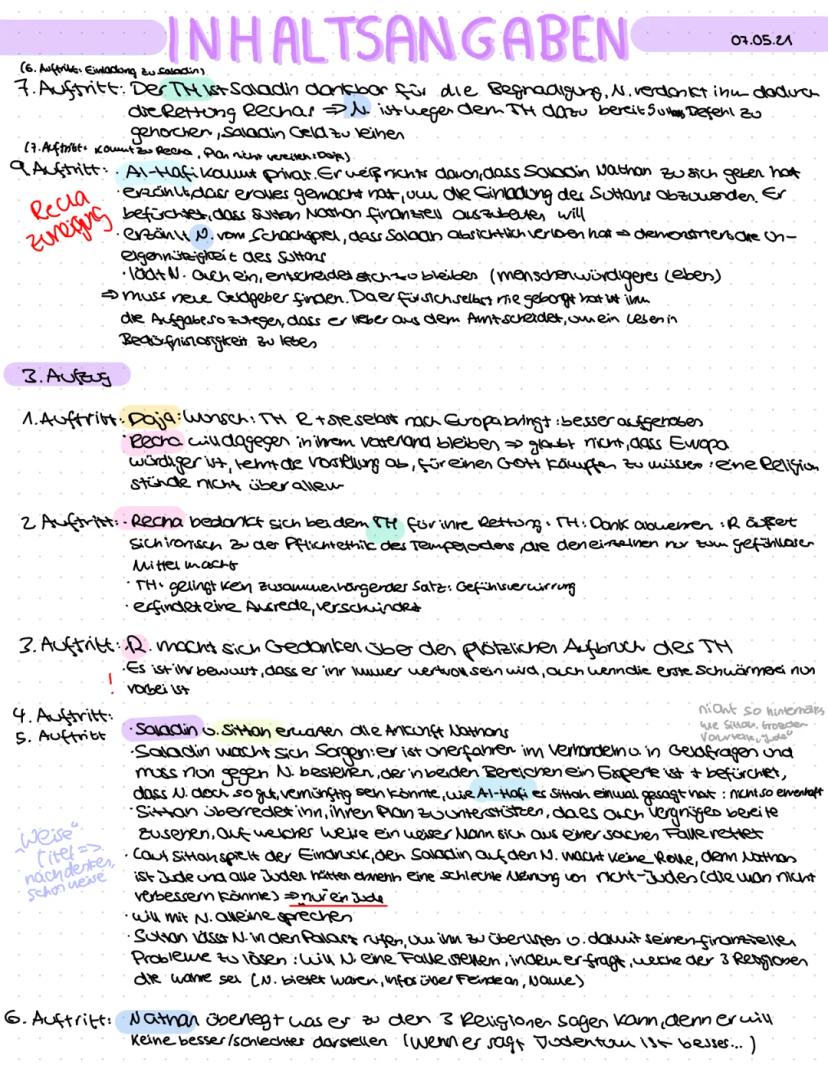 INHALTSANGABEN
07.05.21
(6. Auftritt: Einladung zu Saladin)
7. Auftritt: Der TH ist Saladin dankbar für die Begnadigung, N. verdankt ihm dadurch
die Rettung Rechas ⇒ N. ist wegen dem TH dazu bereit Befehl zu
gehorchen, Saladin Geld zu leihen
(7. Auftritt: kommt zu Recha, Plan nicht vereiteln: Daja)
9 Auftritt: · Al-Hafi kommt privat. Er weiß nichts davon, dass Saladin Nathan zu sich geben hat
· erzählt, dass er alles gemacht hat, um die Einladung des Sultans abzuwenden. Er
befürchtet, dass Sultan Nathan finanziell ausbeuten will
Recha
zuneigung
· erzählt N. vom Schachspiel, dass Saladin absichtlich verloren hat ⇒ demonstriert die Un-
eigennützigkeit des Sultans
· lädt N. auch ein, entscheidet sich zu bleiben (menschenwürdigeres Leben)
⇒ muss neue Geldgeber finden. Da er für sich selbst nie geborgt hat ist ihm
die Aufgabe so zuwider, dass er lieber aus dem Amt scheidet, um ein Leben in
Bedürfnislosigkeit zu leben
3. Aufzug
1. Auftritt: Daja: Wunsch: TH R + sie selbst nach Europa bringt : besser aufgehoben
· Recha will dagegen in ihrem Vaterland bleiben ⇒ glaubt nicht, dass Europa
würdiger ist, lehnt die Vorstellung ab, für einen Gott kämpfen zu müssen : eine Religion
stünde nicht über allem
2 Auftritt: · Recha bedankt sich bei dem TH für ihre Rettung · TH: Dank abwehren : R äußert
sich ironisch zu der Pflichtethik des Tempelordens, die den einzelnen nur zum gefühllosen
Mittel macht
· TH: gelingt kein zusammenhängender Satz: Gefühlsverwirrung
· erfindet eine Ausrede, verschwindet
3. Auftritt: R. macht sich Gedanken über den plötzlichen Aufbruch des TH
· Es ist ihr bewusst, dass er ihr immer wertvoll sein wird, auch wenn die erste Schwärmerei nun
! vorbei ist
4. Auftritt:
5. Auftritt · Saladin u. Sittah erwarten die Ankunft Nathans
nicht so hinterhältig
wie Sittah.
Vorurteile „Jude"
· Saladin macht sich Sorgen: er ist unerfahren im Verhandeln u. in Geldfragen und
muss nun gegen N. bestehen, der in beiden Bereichen ein Experte ist + befürchtet,
dass N. doch so gut, vernünftig sein könnte, wie Al-Hafi es Sittah einmal gesagt hat : nicht so ehrenhaft
· Sittah überredet ihn, ihren Plan zu unterstützen, da es auch Vergnügen bereite
zusehen, auf welcher Weise ein weiser Mann sich aus einer solchen Falle rettet
„Weise"
Titel ⇒
nachdenken,
schon weise
· Laut Sittah spielt der Eindruck, den Saladin auf den N. macht keine Rolle, denn Nathan
ist Jude und alle Juden hätten ohnehin eine schlechte Meinung von nicht-Juden (die man nicht
verbessern könnte) ⇒ „nur ein Jude
· will mit N. alleine sprechen
· Sultan lässt N. in den Palast rufen, um ihn zu überlisten u. damit seinen finanziellen
Probleme zu lösen : will N. eine Falle stellen, indem er fragt, welche der 3 Religionen
die wahre sei (N. bietet Waren, Infos über Feinde an, Name)
6. Auftritt: Nathan überlegt was er zu den 3 Religionen sagen kann, denn er will
keine besser/schlechter darstellen (wenn er sagt Judentum ist besser...)